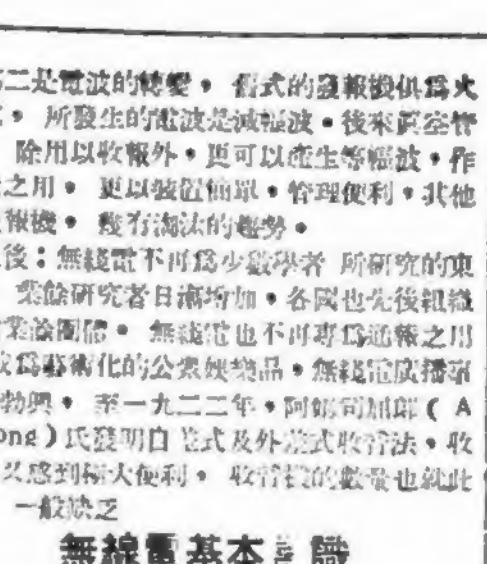 二是電波的轉變。舊式的發報機俱爲火
。所發生的電波是減幅波。後來眞空管
除用以收報外。更可以產生等幅波。作
之用。更以裝置簡單。管理便利。其他
報機。幾有淘汰的趨勢。
後：無綫電不再爲少數學者 所研究的東
業餘研究者日漸增加。各國也先後組織
業餘團體。無綫電也不再專爲通報之用
爲藝術化的公衆娛樂品。無綫電廣播
勃興。至一九二二年。阿姆司 ( A
ong ) 氏發明 式及外差式收音法。收
又感到極大便利。收音機的數量也就此
一般缺乏
無線電基本 識